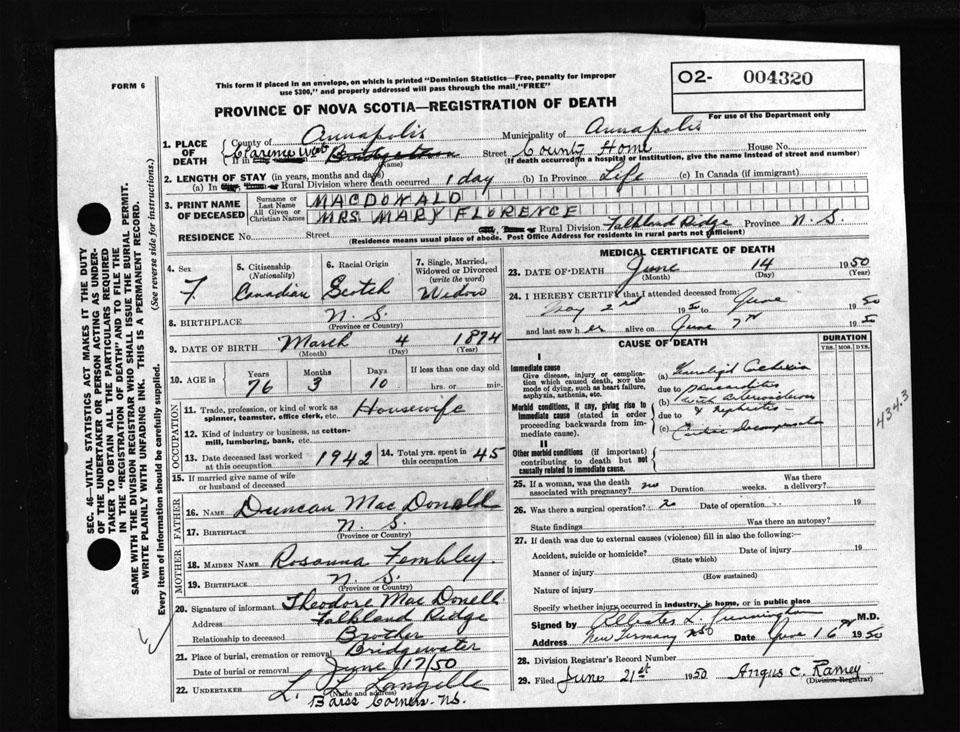 FORM 6
This form if placed in an envelope, on which is printed "Dominion Statistics—Free, penalty for improper
use $300," and properly addressed will pass through the mail "FREE"
O2- 004320
For use of the Department only
PROVINCE OF NOVA SCOTIA—REGISTRATION OF DEATH
1. PLACE OF DEATH
County of Annapolis Municipality of Annapolis
If in Clarence West Bridgetown (Name) Street County Home House No.
(If death occurred in a hospital or institution, give the name instead of street and number)
2. LENGTH OF STAY (in years, months and days)
(a) In City, Town or Rural Division where death occurred 1 day (b) In Province Life (c) In Canada (if immigrant)
3. PRINT NAME OF DECEASED
Surname or Last Name MACDONALD
All Given or Christian Names MRS. MARY FLORENCE
RESIDENCE No. Street City, Town or Rural Division Falkland Ridge Province N. S.
(Residence means usual place of abode. Post Office Address for residents in rural parts not sufficient)
4. Sex F.
5. Citizenship (Nationality) Canadian
6. Racial Origin Scotch
7. Single, Married, Widowed or Divorced (write the word) Widow
8. BIRTHPLACE N. S.
(Province or Country)
9. DATE OF BIRTH March 4 1874
(Month) (Day) (Year)
10. AGE in Years 76 Months 3 Days 10 If less than one day old hrs. or min.
OCCUPATION
11. Trade, profession, or kind of work as spinner, teamster, office clerk, etc. Housewife
12. Kind of industry or business, as cotton-mill, lumbering, bank, etc.
13. Date deceased last worked at this occupation 1942 14. Total yrs. spent in this occupation 45
15. If married give name of wife or husband of deceased
FATHER
16. NAME Duncan MacDonald
17. BIRTHPLACE N. S.
(Province or Country)
MOTHER
18. MAIDEN NAME Rosanna
19. BIRTHPLACE N. S.
(Province or Country)
20. Signature of informant Theodore MacDonell
Address Falkland Ridge
Relationship to deceased Brother
21. Place of burial, cremation or removal Bridgewater
Date of burial or removal June 17/50
22. UNDERTAKER L. Longille
(Name and address)
Barss Corners. N.S.
MEDICAL CERTIFICATE OF DEATH
23. DATE OF DEATH June 14 1950
(Month) (Day) (Year)
24. I HEREBY CERTIFY that I attended deceased from:
May 2nd 1950 to June 1950
and last saw her alive on June 7th 1950
CAUSE OF DEATH
DURATION
YRS. MOS. DYS.
I
Immediate cause
Give disease, injury or complication which caused death, not the mode of dying, such as heart failure, asphyxia, asthenia, etc.
(a)
due to
Morbid conditions, if any, giving rise to immediate cause (stated in order proceeding backwards from immediate cause).
(b) with arteriosclerosis
due to & nephritis
(c) Cardiac decompensation
II
Other morbid conditions (if important) contributing to death but not causally related to immediate cause.
4343
25. If a woman, was the death associated with pregnancy? no Duration weeks. Was there a delivery?
26. Was there a surgical operation? no Date of operation 19
State findings Was there an autopsy?
27. If death was due to external causes (violence) fill in also the following:—
Accident, suicide or homicide? Date of injury 19
(State which)
Manner of injury
(How sustained)
Nature of injury
Specify whether injury occurred in industry, in home, or in public place
Signed by Cunningham M.D.
Address New Germany NS Date June 16th 1950
28. Division Registrar's Record Number
29. Filed June 21st 1950 Angus C. Ramey
(Division Registrar)
SEC. 46—VITAL STATISTICS ACT MAKES IT THE DUTY
OF THE UNDERTAKER OR PERSON ACTING AS UNDER-
TAKER TO OBTAIN ALL THE PARTICULARS REQUIRED
IN THE "REGISTRATION OF DEATH" AND TO FILE THE
SAME WITH THE DIVISION REGISTRAR WHO SHALL ISSUE THE BURIAL PERMIT.
WRITE PLAINLY WITH UNFADING INK. THIS IS A PERMANENT RECORD.
Every item of information should be carefully supplied. (See reverse side for instructions.)